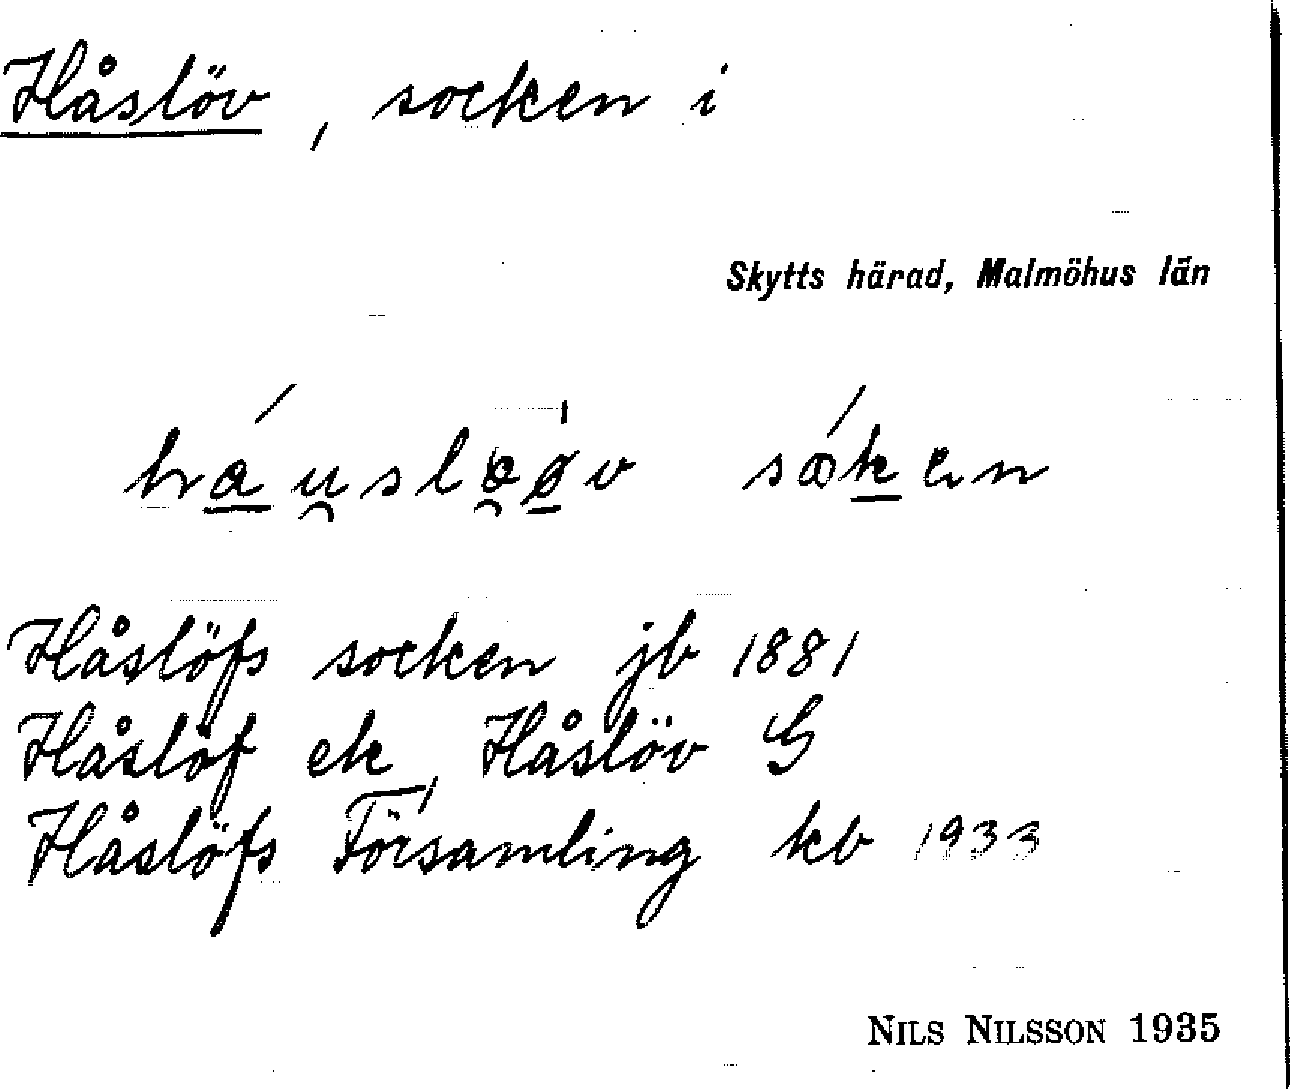 Håslöv, socken i
Skytts härad, Malmöhus län
Håslöfs socken jb 1881
Håslöf ek, Håslöv G
Håslöfs Församling kb 1933
NILS NILSSON 1935